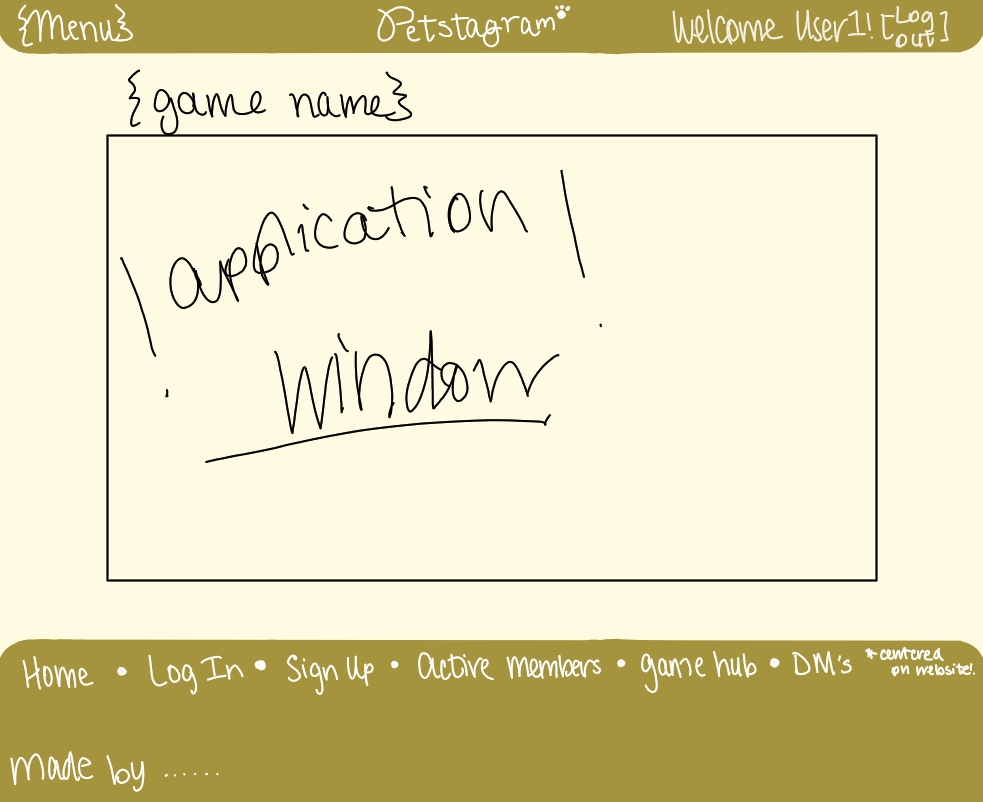 {Menu} Petstagram Welcome User1! [Log out]
{game name}
|application|
window
Home • Log In • Sign Up • Active members • game hub • DM's *centered on website!
made by ......